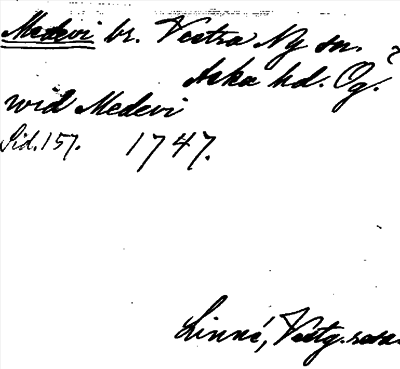 Medevi br. Vestra Ny sn.
Aska hd. Ög.
wid Medevi
Sid. 157. 1747.
Linné, Vestg.resa